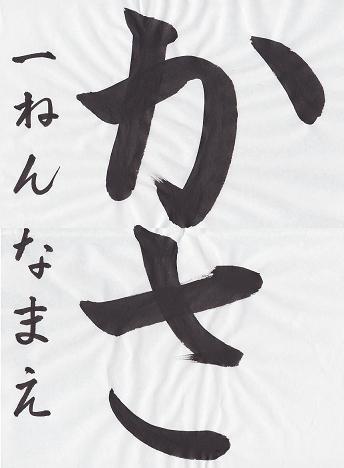 かさ
一ねんなまえ